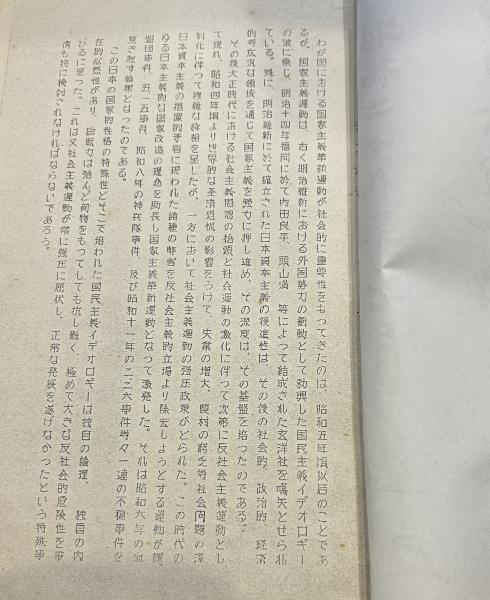 わが国における国家主義革新運動が社会的に重要性をもってきたのは、昭和五年頃以后のことであ
るが、国家主義運動は、古く明治維新における外国勢力の衝動として勃興した国民主義イデオロギー
の波に乗じ、明治十四年福岡に於て内田良平、頭山満 等によって結成された玄洋社を嚆矢とせられ
ている。殊に、明治維新に於て確立された日本資本主義の後進性は、その後の社会的、政治的、経済
的等広汎な領域を通じて国家主義を強力に押し進め、その深度は、その基盤を培ったのである。
その後大正時代における社会主義思想の抬頭と社会運動の激化に伴って次第に反社会主義運動とし
て現れ、昭和四年頃より世界的な経済恐慌の影響をうけて、失業の増大、農村の窮乏等社会問題の深
刻化に伴って複雑な様相を呈したが、一方において社会主義運動の弾圧政策がとられた。この時代の
日本資本主義の 矛盾に現われた諸種の弊害を反社会主義的立場より除去しようとする運動が、
ゆる日本主義的な国家改造の理念を助長し国家主義革新運動となって激発した。それは昭和六年の血
盟団事件、五一五事件、昭和八年の神兵隊事件、及び昭和十一年の二二六事件等々一連の不穏事件を
惹き起す結果となったのである。
この日本の国家的性格の特殊性とそこで培われた国民主義イデオロギーは独自の論理、独自の内
在的必然性があり、自転力は殆んど何物をもってしても抗し難く、極めて大きな反社会的危険性を帯
びるに至った。これは又社会主義運動が常に弾圧に屈伏し、正常な発展を遂げなかったという特殊事
情も特に検討されなければならないであろう。